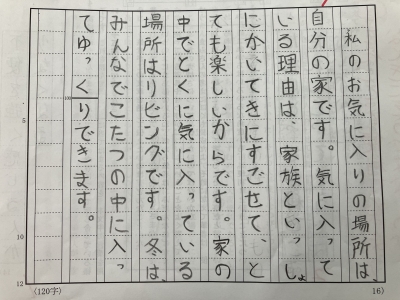 私のお気に入りの場所は、
自分の家です。気に入って
いる理由は、家族といっしょ
にかいてきにすごせて、と
ても楽しいからです。家の
中でとくに気に入っている
場所はリビングです。冬は、
みんなでこたつの中に入っ
てゆっくりできます。
5
10
12
100
(120字)
16)